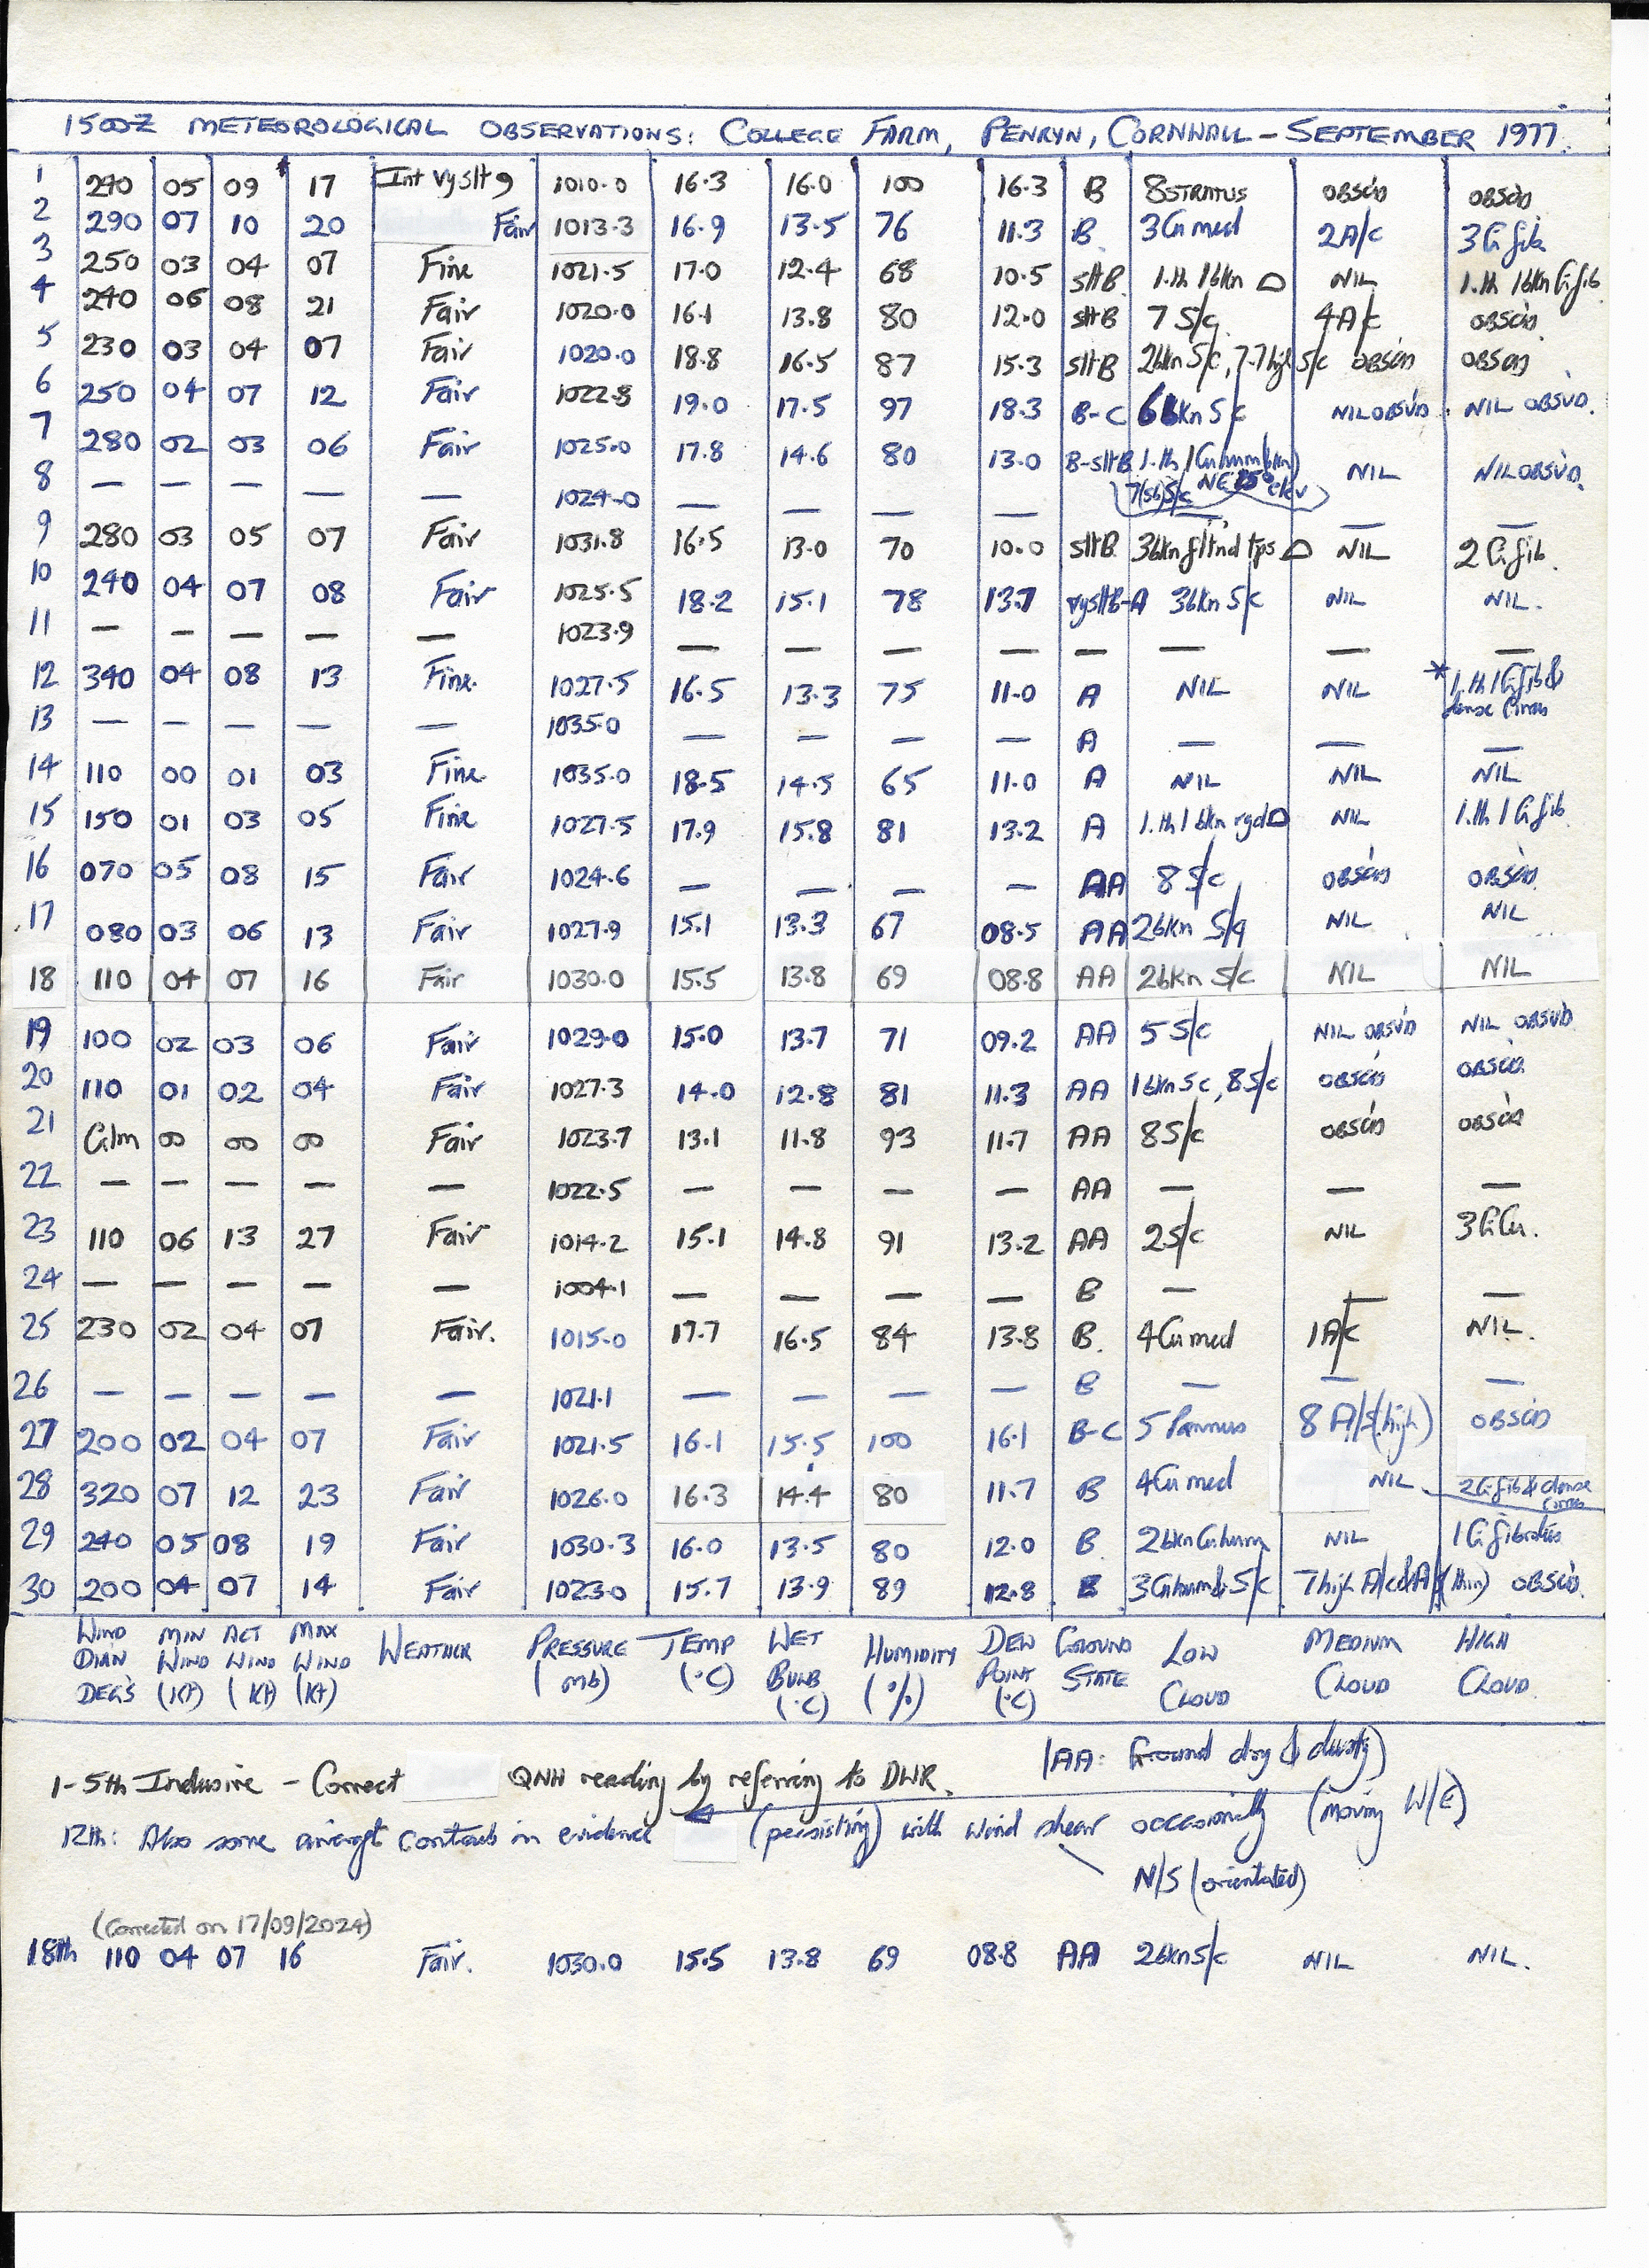 1500Z METEOROLOGICAL OBSERVATIONS: COLLEGE FARM, PENRYN, CORNWALL – SEPTEMBER 1977.
1 05 09 17 Int vy slt 1010.0 16.3 16.0 100 16.3 B 8 STRATUS OBSC'D OBSC'D
2 290 07 10 20 Fair 1013.3 16.9 13.5 76 11.3 B. 3 Cu med 2 A/c 3 Ci fib
3 250 03 04 07 Fine 1021.5 17.0 12.4 68 10.5 slt B. 1.th 1 bkn NIL 1.th 1 bkn Ci fib
4 240 06 08 21 Fair 1020.0 16.1 13.8 80 12.0 slt B 7 S/c 4 A/c OBSC'D
5 230 03 04 07 Fair 1020.0 18.8 16.5 87 15.3 slt B 2 bkn S/c, S/c OBSC'D OBSC'D
6 250 04 07 12 Fair 1022.8 19.0 17.5 97 18.3 B-C 6 bkn S/c NIL OBSV'D NIL OBSV'D.
7 280 02 03 06 Fair 1025.0 17.8 14.6 80 13.0 B-slt B 1.th 1 Cu hum NIL NIL OBSV'D.
8 — — — — — 1024.0 — — — — — —
9 280 03 05 07 Fair 1031.8 16.5 13.0 70 10.0 slt B 3 bkn tps NIL 2 Ci fib.
10 240 04 07 08 Fair 1025.5 18.2 15.1 78 13.7 vy slt B-A 3 bkn S/c NIL NIL.
11 — — — — — 1023.9 — — — — — — — —
12 340 04 08 13 Fine 1027.5 16.5 13.3 75 11.0 A NIL NIL * 1.th 1 Ci fib & dense Cirrus
13 — — — — — 1035.0 — — — — A — — —
14 110 00 01 03 Fine 1035.0 18.5 14.5 65 11.0 A NIL NIL NIL
15 150 01 03 05 Fine 1027.5 17.9 15.8 81 13.2 A 1.th 1 bkn NIL 1.th 1 Ci fib
16 070 05 08 15 Fair 1024.6 — — — — AA 8 S/c OBSC'D OBSC'D
17 080 03 06 13 Fair 1027.9 15.1 13.3 67 08.5 AA 2 bkn S/c NIL NIL
18 110 04 07 16 Fair 1030.0 15.5 13.8 69 08.8 AA 2 bkn S/c NIL NIL
19 100 02 03 06 Fair 1029.0 15.0 13.7 71 09.2 AA 5 S/c NIL OBSV'D NIL OBSV'D
20 110 01 02 04 Fair 1027.3 14.0 12.8 81 11.3 AA 1 bkn Sc, 8 S/c OBSC'D OBSC'D
21 Calm 00 00 00 Fair 1023.7 13.1 11.8 93 11.7 AA 8 S/c OBSC'D OBSC'D
22 — — — — — 1022.5 — — — — AA — — —
23 110 06 13 27 Fair 1014.2 15.1 14.8 91 13.2 AA 2 S/c NIL 3 Ci Cu.
24 — — — — — 1004.1 — — — — B — — —
25 230 02 04 07 Fair. 1015.0 17.7 16.5 84 13.8 B. 4 Cu med 1 A/c NIL.
26 — — — — — 1021.1 — — — — B — — —
27 200 02 04 07 Fair 1021.5 16.1 15.5 100 16.1 B-C 5 Pannus 8 A/s (high) OBSC'D
28 320 07 12 23 Fair 1026.0 16.3 14.4 80 11.7 B 4 Cu med NIL 2 Ci fib & dense Cirrus
29 240 05 08 19 Fair 1030.3 16.0 13.5 80 12.0 B. 2 bkn Cu hum NIL 1 Ci fibratus
30 200 04 07 14 Fair 1023.0 15.7 13.9 89 12.8 B 3 Cu hum & S/c 7 high A/c & A/s (thin) OBSC'D.
WIND DIR'N DEG'S MIN WIND (KT) ACT WIND (KT) MAX WIND (KT) WEATHER PRESSURE (mb) TEMP (°C) WET BULB (°C) HUMIDITY (%) DEW POINT (°C) GROUND STATE LOW CLOUD MEDIUM CLOUD HIGH CLOUD.
(AA: Ground dry & dusty)
1-5th Inclusive – Correct QNH reading by referring to DWR.
12th: Also some aircraft contrails in evidence (persisting) with wind shear occasionally (moving W/E)
N/S (orientated)
(Corrected on 17/09/2024)
18th 110 04 07 16 Fair. 1030.0 15.5 13.8 69 08.8 AA 2 bkn S/c NIL NIL.